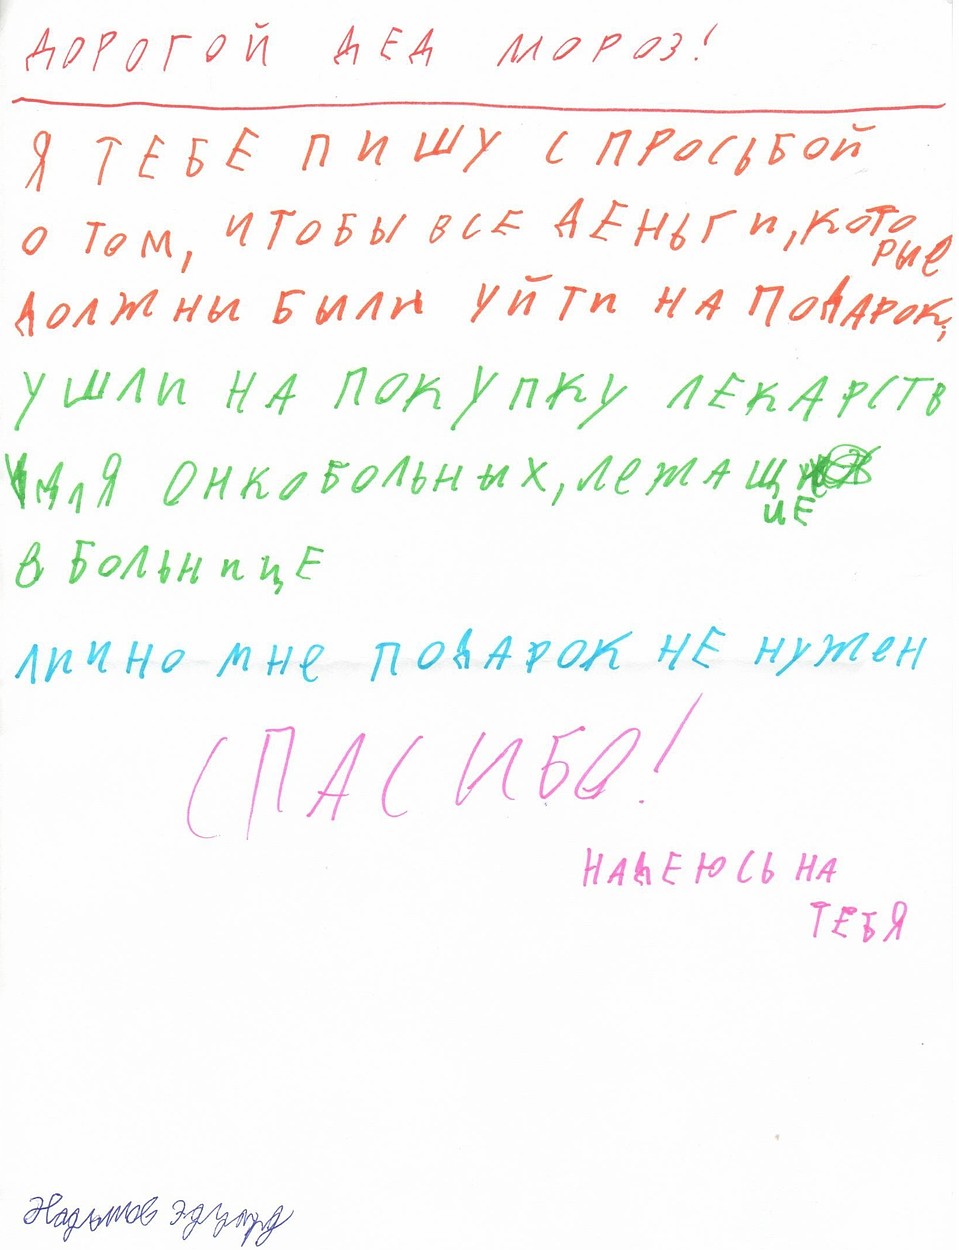 ДОРОГОЙ ДЕД МОРОЗ!
Я ТЕБЕ ПИШУ С ПРОСЬБОЙ
О ТОМ, ЧТОБЫ ВСЕ ДЕНЬГИ, КОТО
РЫЕ
ДОЛЖНЫ БЫЛИ УЙТИ НА ПОДАРОК,
УШЛИ НА ПОКУПКУ ЛЕКАРСТВ
ДЛЯ ОНКОБОЛЬНЫХ, ЛЕЖАЩ
ИЕ
В БОЛЬНИЦЕ
ЛИЧНО МНЕ ПОДАРОК НЕ НУЖЕН
СПАСИБО!
НАДЕЮСЬ НА
ТЕБЯ
Эдуард